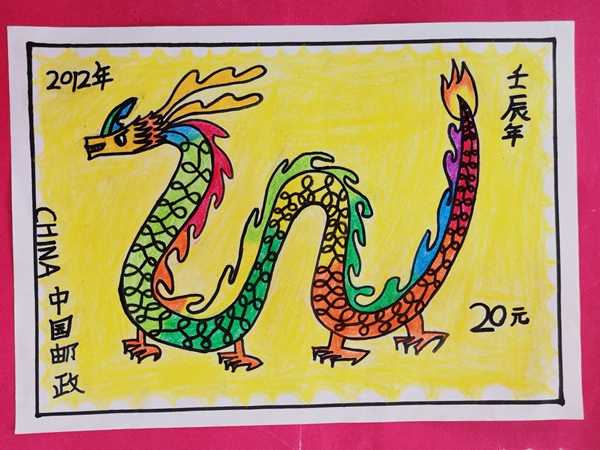 2012年
壬辰年
CHINA 中国邮政
20元